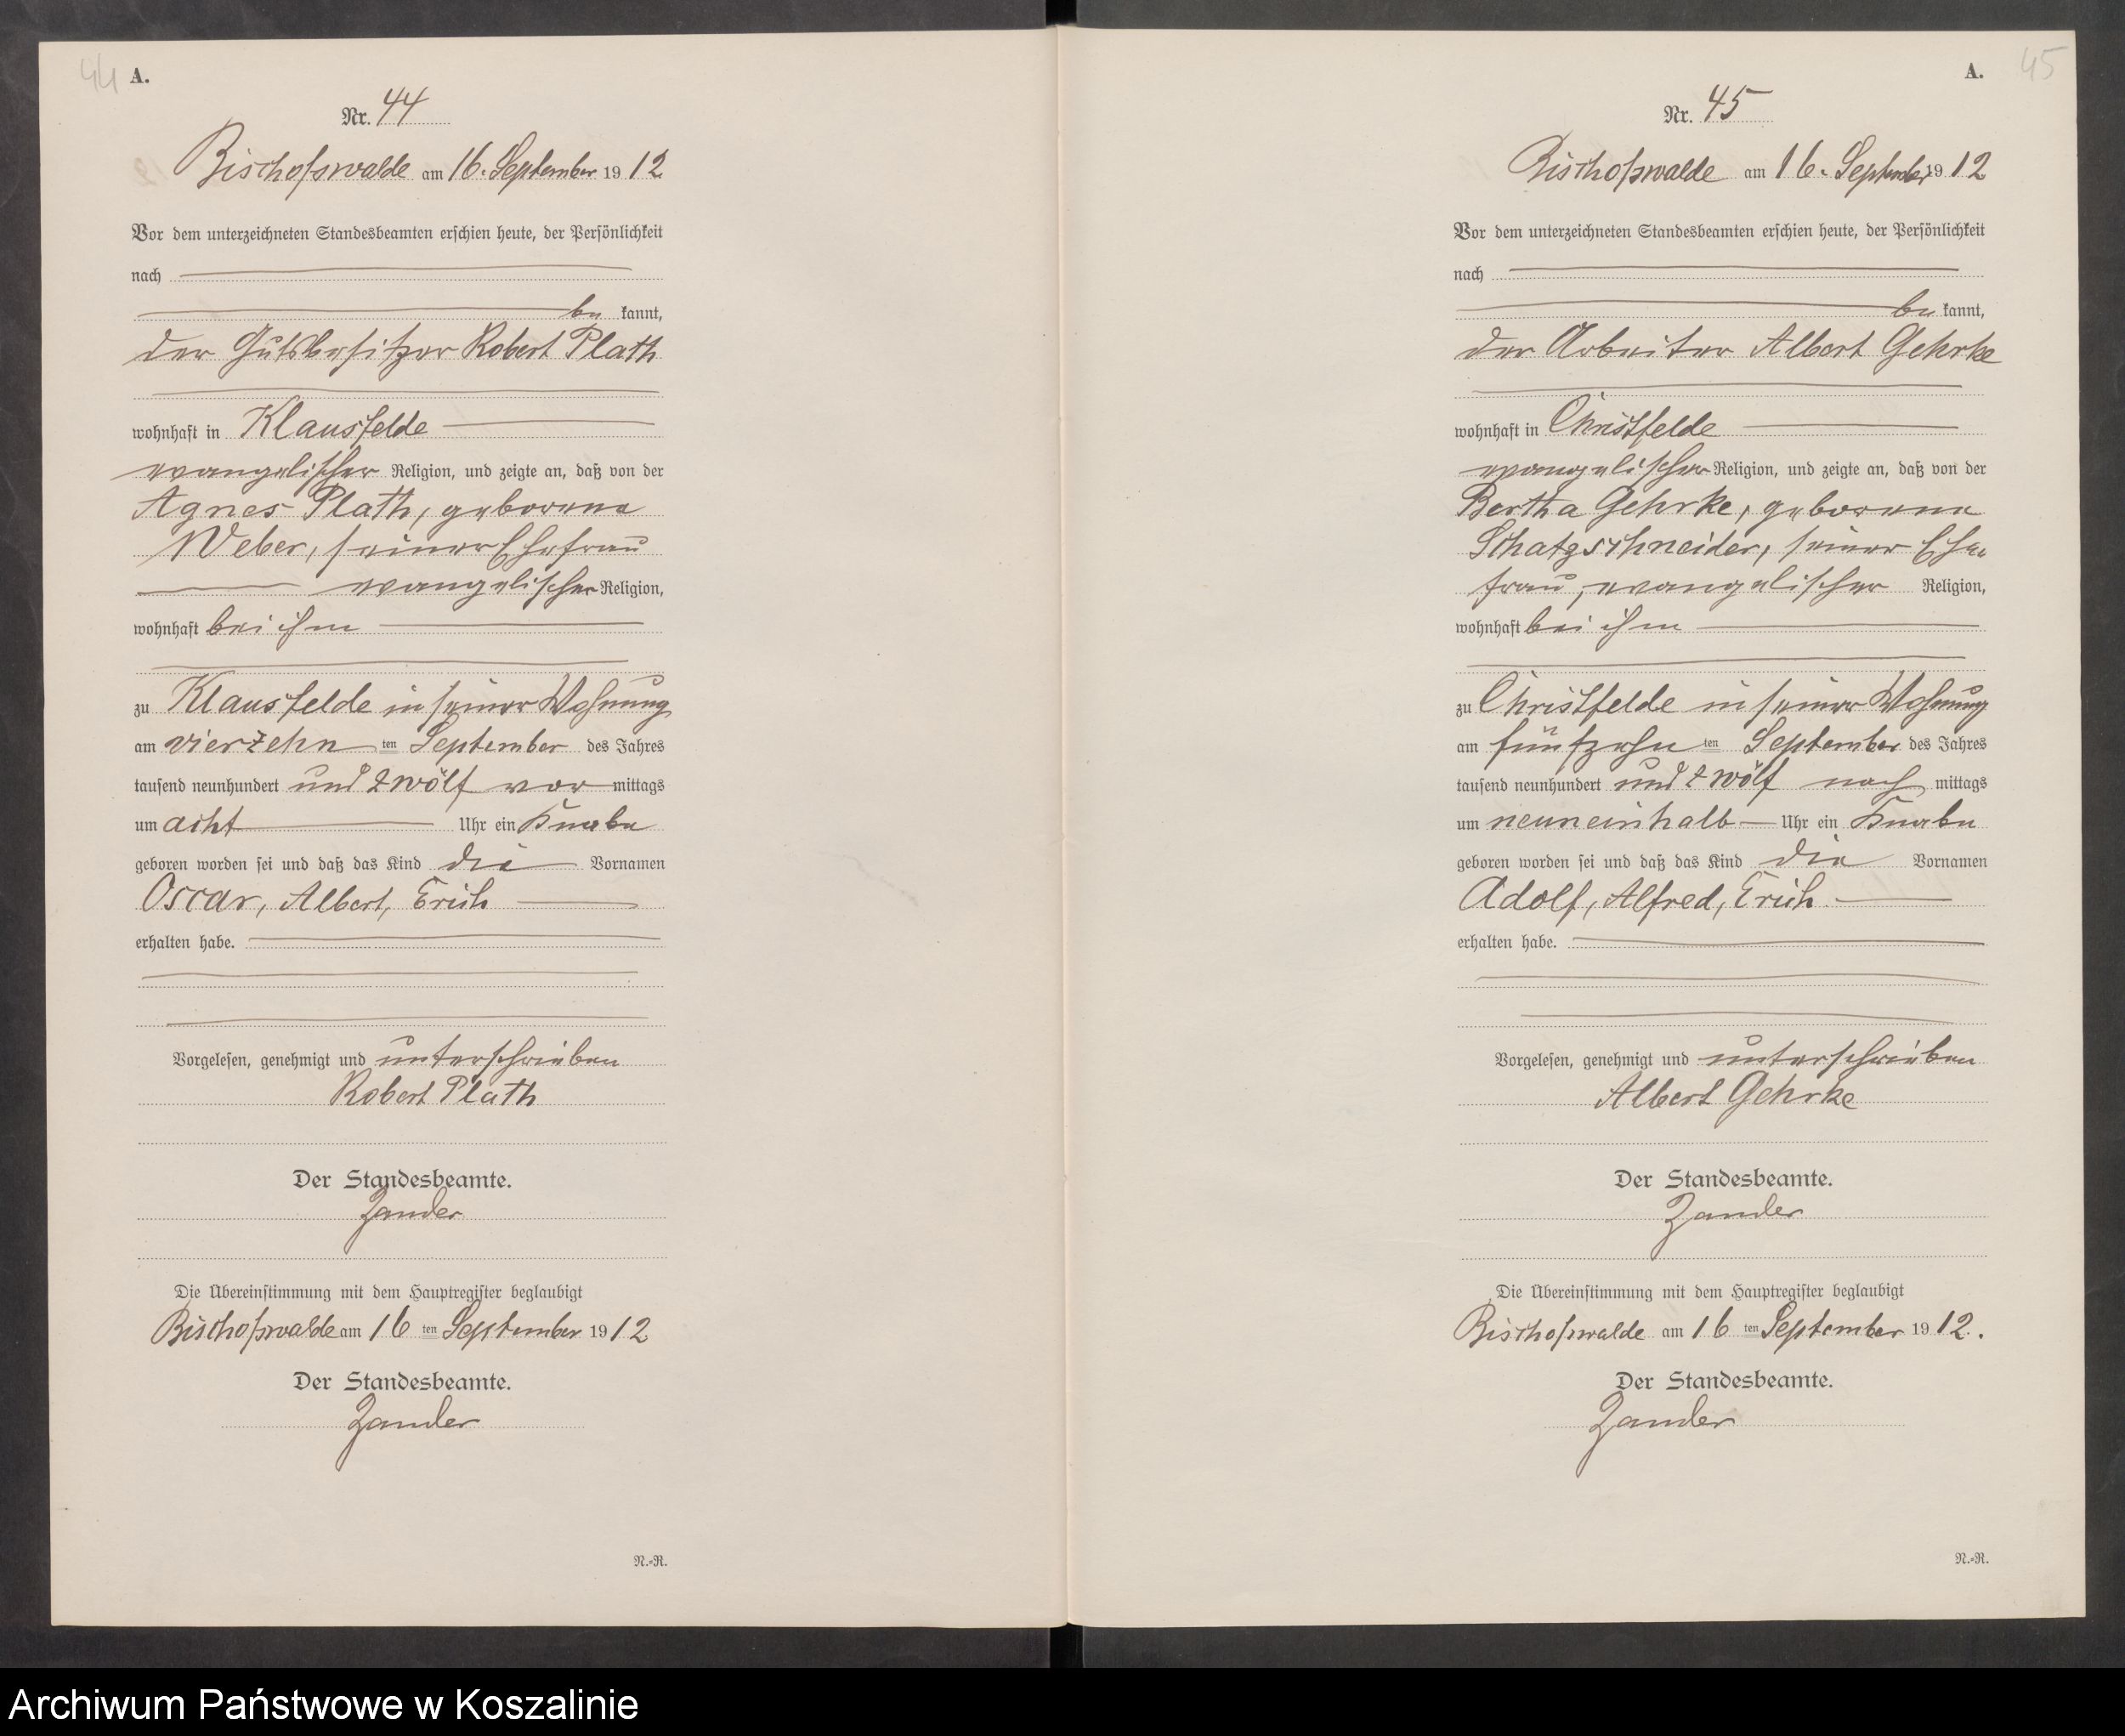 44 A.
Nr. 44
Bischofswalde am 16. September 1912
Vor dem unterzeichneten Standesbeamten erschien heute, der Persönlichkeit
nach
be kannt,
der Gutsbesitzer Robert Plath
wohnhaft in Klausfelde
evangelischer Religion, und zeigte an, daß von der
Agnes Plath, geborene
Weber, seiner Ehefrau
evangelischer Religion,
wohnhaft bei ihm
zu Klausfelde in seiner Wohnung
am vierzehn ten September des Jahres
tausend neunhundert und zwölf vor mittags
um acht Uhr ein Knabe
geboren worden sei und daß das Kind die Vornamen
Oscar, Albert, Erich
erhalten habe.
Vorgelesen, genehmigt und unterschrieben
Robert Plath
Der Standesbeamte.
Zander
Die Übereinstimmung mit dem Hauptregister beglaubigt
Bischofswalde am 16 ten September 1912
Der Standesbeamte.
Zander
N.-R.
A. 45
Nr. 45
Bischofswalde am 16. September 1912
Vor dem unterzeichneten Standesbeamten erschien heute, der Persönlichkeit
nach
be kannt,
der Arbeiter Albert Gehrke
wohnhaft in Christfelde
evangelischer Religion, und zeigte an, daß von der
Bertha Gehrke, geborene
Schatzschneider, seiner Ehe
frau, evangelischer Religion,
wohnhaft bei ihm
zu Christfelde in seiner Wohnung
am fünfzehn ten September des Jahres
tausend neunhundert und zwölf nach mittags
um neuneinhalb Uhr ein Knabe
geboren worden sei und daß das Kind die Vornamen
Adolf, Alfred, Erich
erhalten habe.
Vorgelesen, genehmigt und unterschrieben
Albert Gehrke
Der Standesbeamte.
Zander
Die Übereinstimmung mit dem Hauptregister beglaubigt
Bischofswalde am 16 ten September 1912.
Der Standesbeamte.
Zander
N.-R.
Archiwum Państwowe w Koszalinie